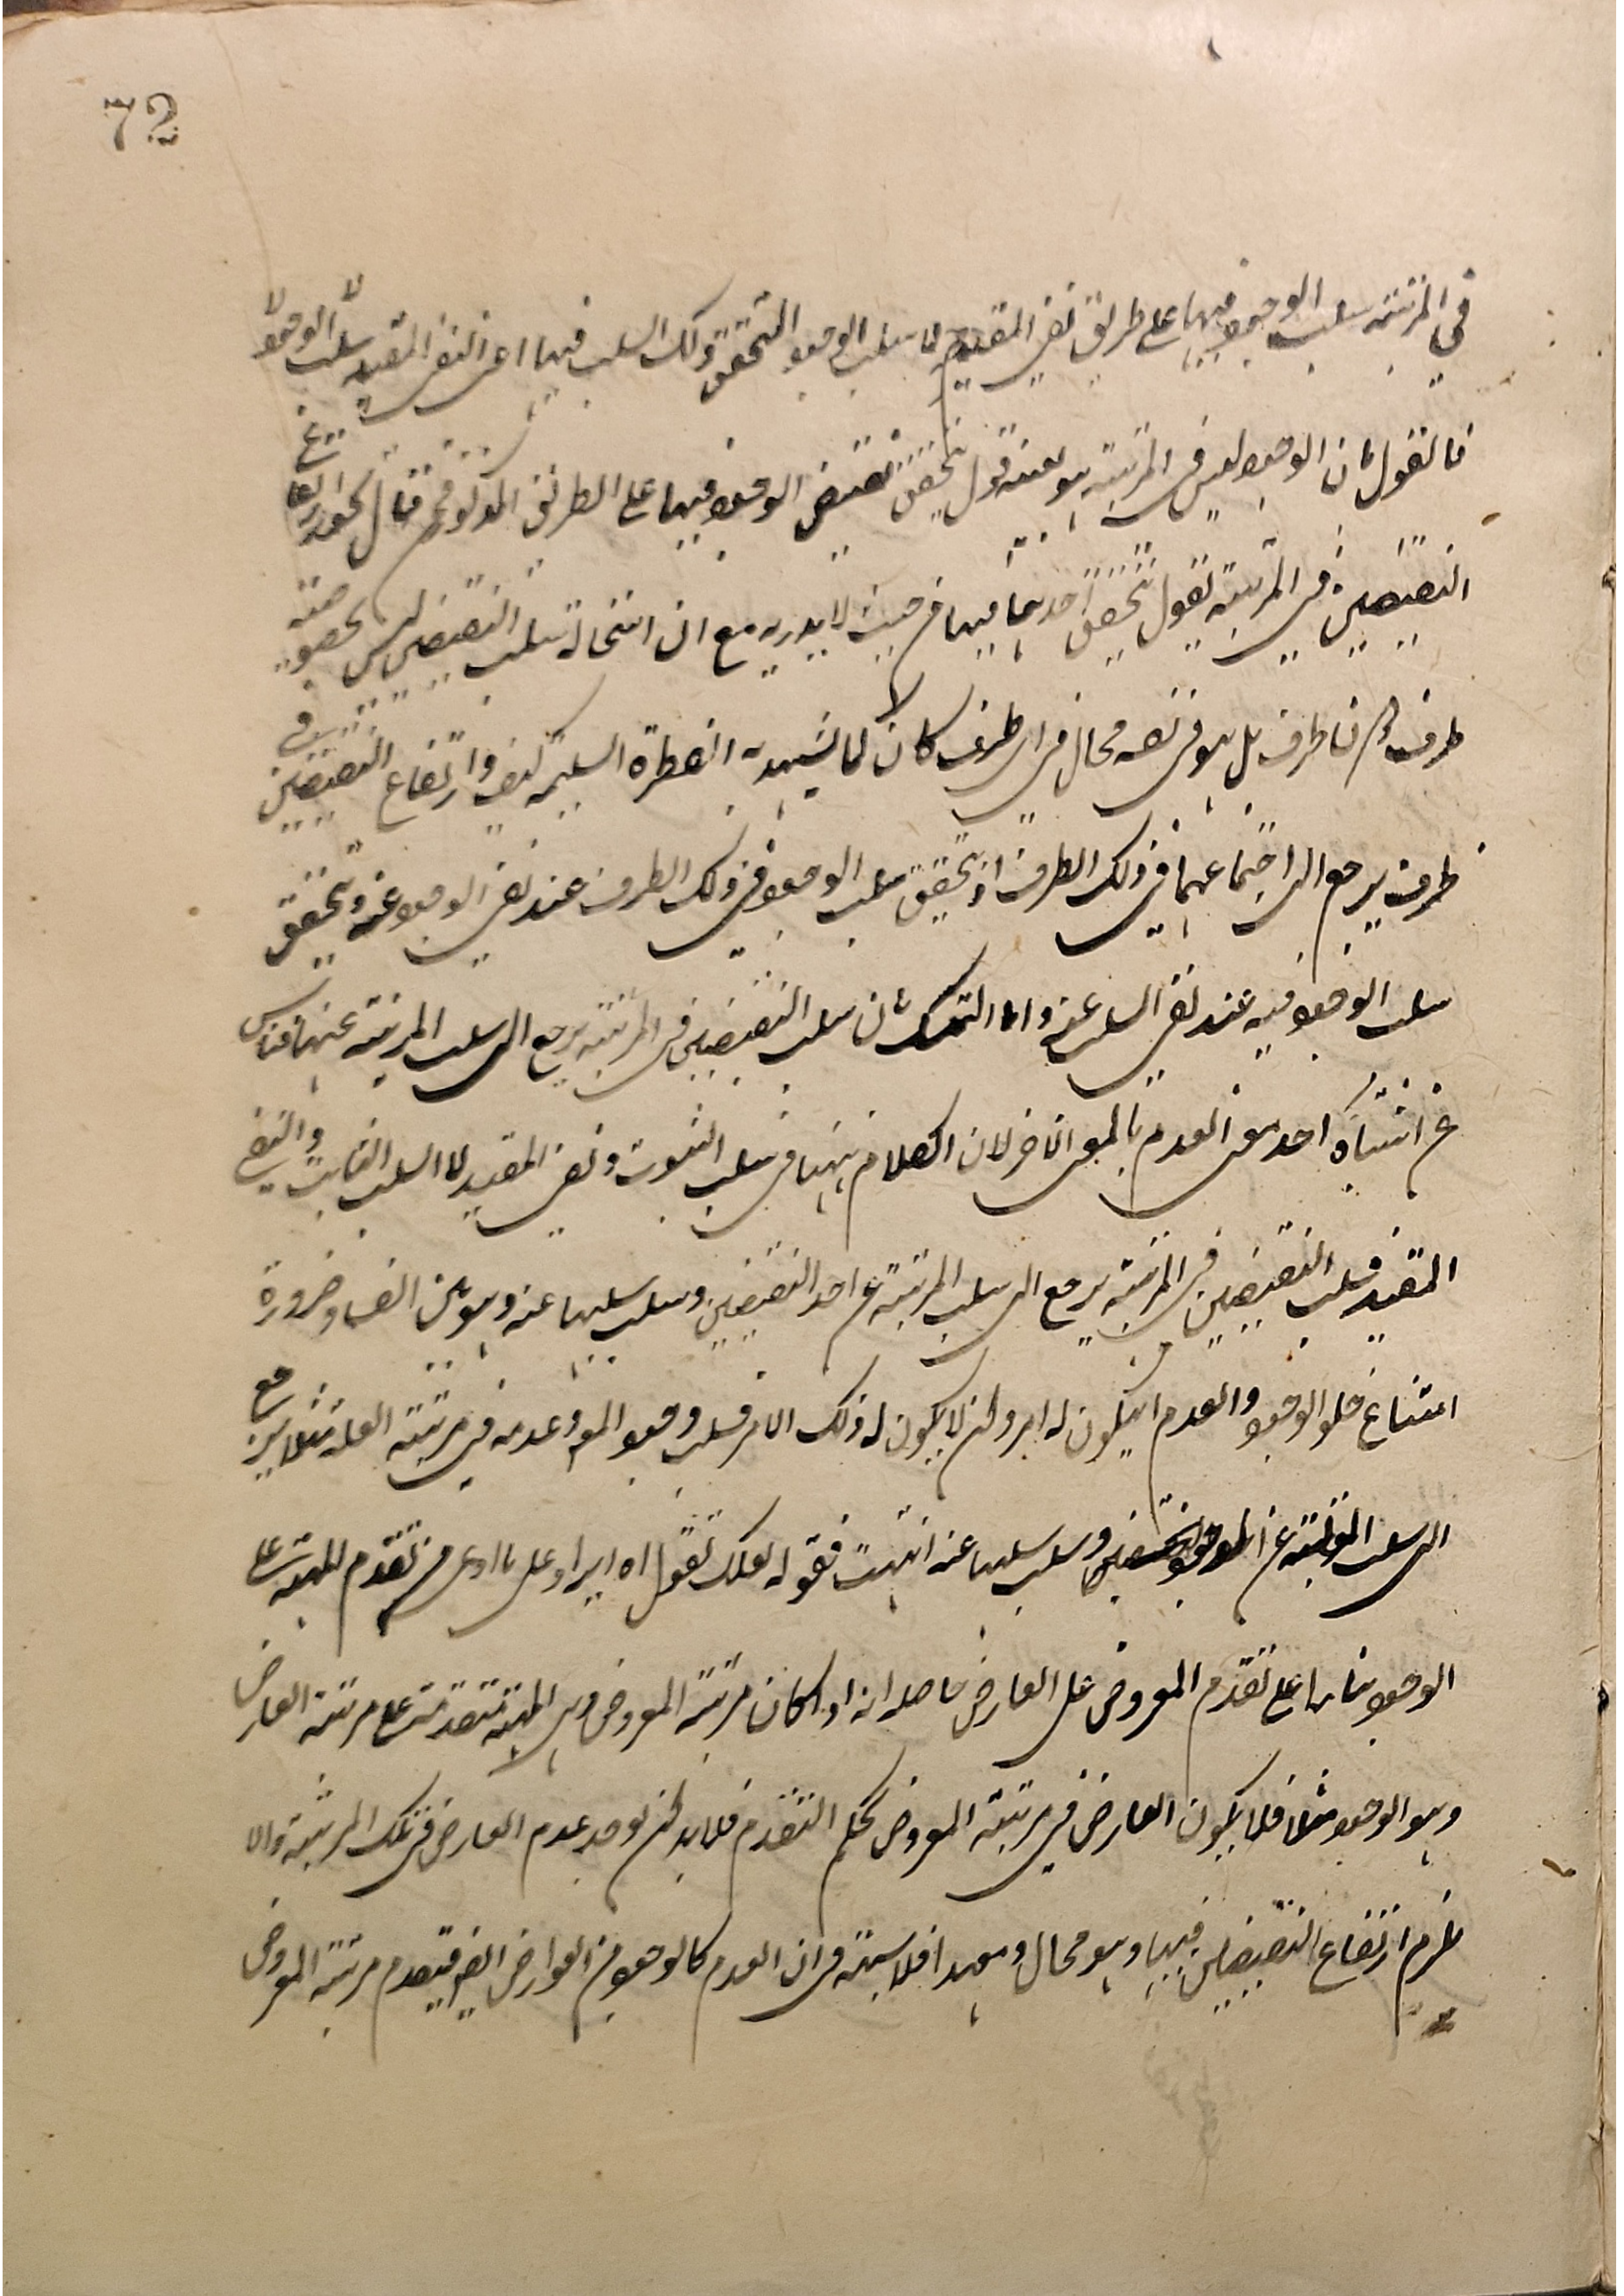 72
في المرتبة سلب الوجود فيها على طريق نفي المقيد لا سلب الوجود المتحقق ذلك السلب فيها اعني النفي المقيد سلب الوجود لا
فالقول بان الوجود ليس في المرتبة هو بعينه قول بتحقق نقيض الوجود فيها على الطريق المذكور فمن قال بجواز ارتفاع
النقيضين في المرتبة يقول بتحقق احدهما فيها من حيث لا يدريه مع ان استحالة سلب النقيضين ليس بخصوصية
ظرف دون ظرف بل هو في نفسه محال في اي ظرف كان كما يشهد به الفطرة السليمة كيف وارتفاع النقيضين في
ظرف يرجع الى اجتماعهما في ذلك الظرف اذ تحقق سلب الوجود في ذلك الظرف عند نفي الوجود عنه وتحقق
سلب الوجود فيه عند نفي السلب عنه واما التمسك بان سلب النقيضين في المرتبة يرجع الى سلب المرتبة عنهما فناش
عن اشتباه احد معنى العدم بالمعنى الآخر لان الكلام ههنا في سلب الثبوت ونفي المقيد لا السلب الثابت والنفي
المقيد فسلب النقيضين في المرتبة يرجع الى سلب المرتبة عن احد النقيضين وسلب سلبها عنه وهو بين الفساد ضرورة
امتناع خلو الوجود والعدم ان يكون له امر ولم لا يكون له ذلك الامر فسلب وجود المع وعدمه في مرتبة العلة مثلا يرجع
الى سلب المرتبة عن الوجود وسلب سلبها عنه انتهت فقوله لعلك تقول اه ايراد على ما ادعى من تقدم المهية على
الوجود بناء على تقدم المعروض على العارض حاصله انه اذا كان مرتبة المعروض وهي المهية متقدمة على مرتبة العارض
وهو الوجود مثلا فلا يكون العارض في مرتبة المعروض بحكم التقدم فلا بد ان يوجد عدم العارض في تلك المرتبة والا
يلزم ارتفاع النقيضين فيها وهو محال وبعد افلا شبهة في ان العدم كالوجود من العوارض ايضا فيتقدم مرتبة المعروض